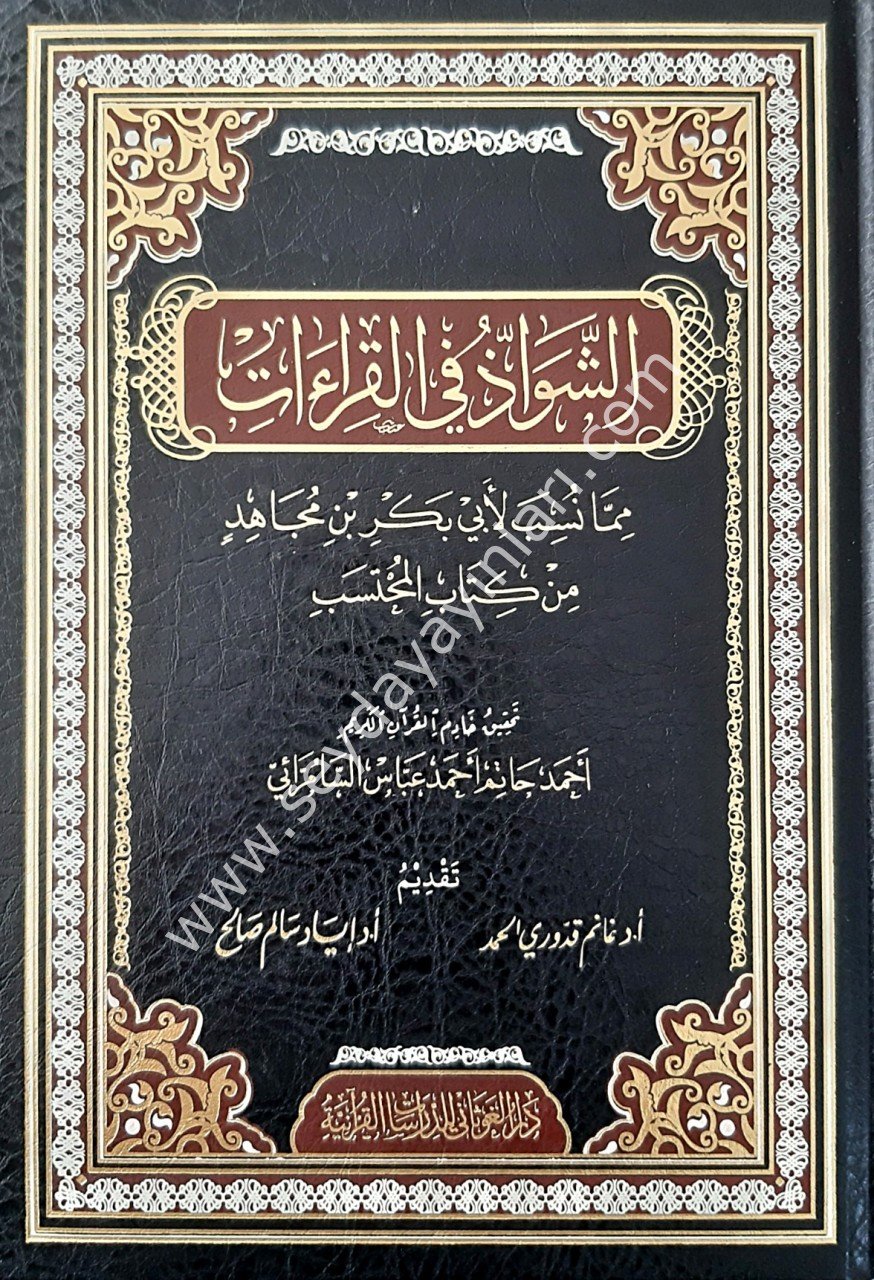 الشَّوَاذُّ فِي القِرَاءَاتِ
مِمَّا نُسِبَ لِأَبِي بَكْرِ بْنِ مُجَاهِدٍ
مِنْ كِتَابِ المُحْتَسَبِ
تحقيق خادم القرآن الكريم
أحمد حاتم أحمد عباس السامرائي
تَقْدِيْمُ
أ.د غانم قدوري الحمد
أ.د إياد سالم صالح
دار الغوثاني للدراسات القرآنية
www.seydayayinlari.com